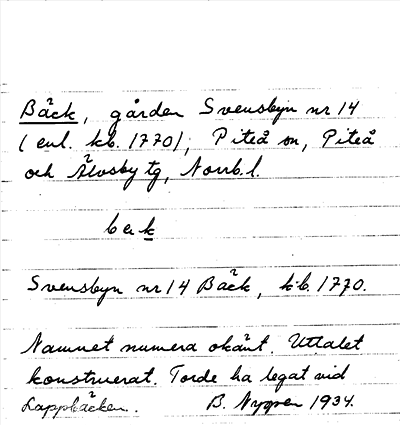 Bäck, gården Svensbyn nr 14
(enl. kb. 1770), Piteå sn, Piteå
och Älvsby tg, Norrb. l.
bɛk
Svensbyn nr 14 Bäck, kb. 1770.
Namnet numera okänt. Uttalet
konstruerat. Torde ha legat vid
Lappbäcken. B. Nygren 1934.